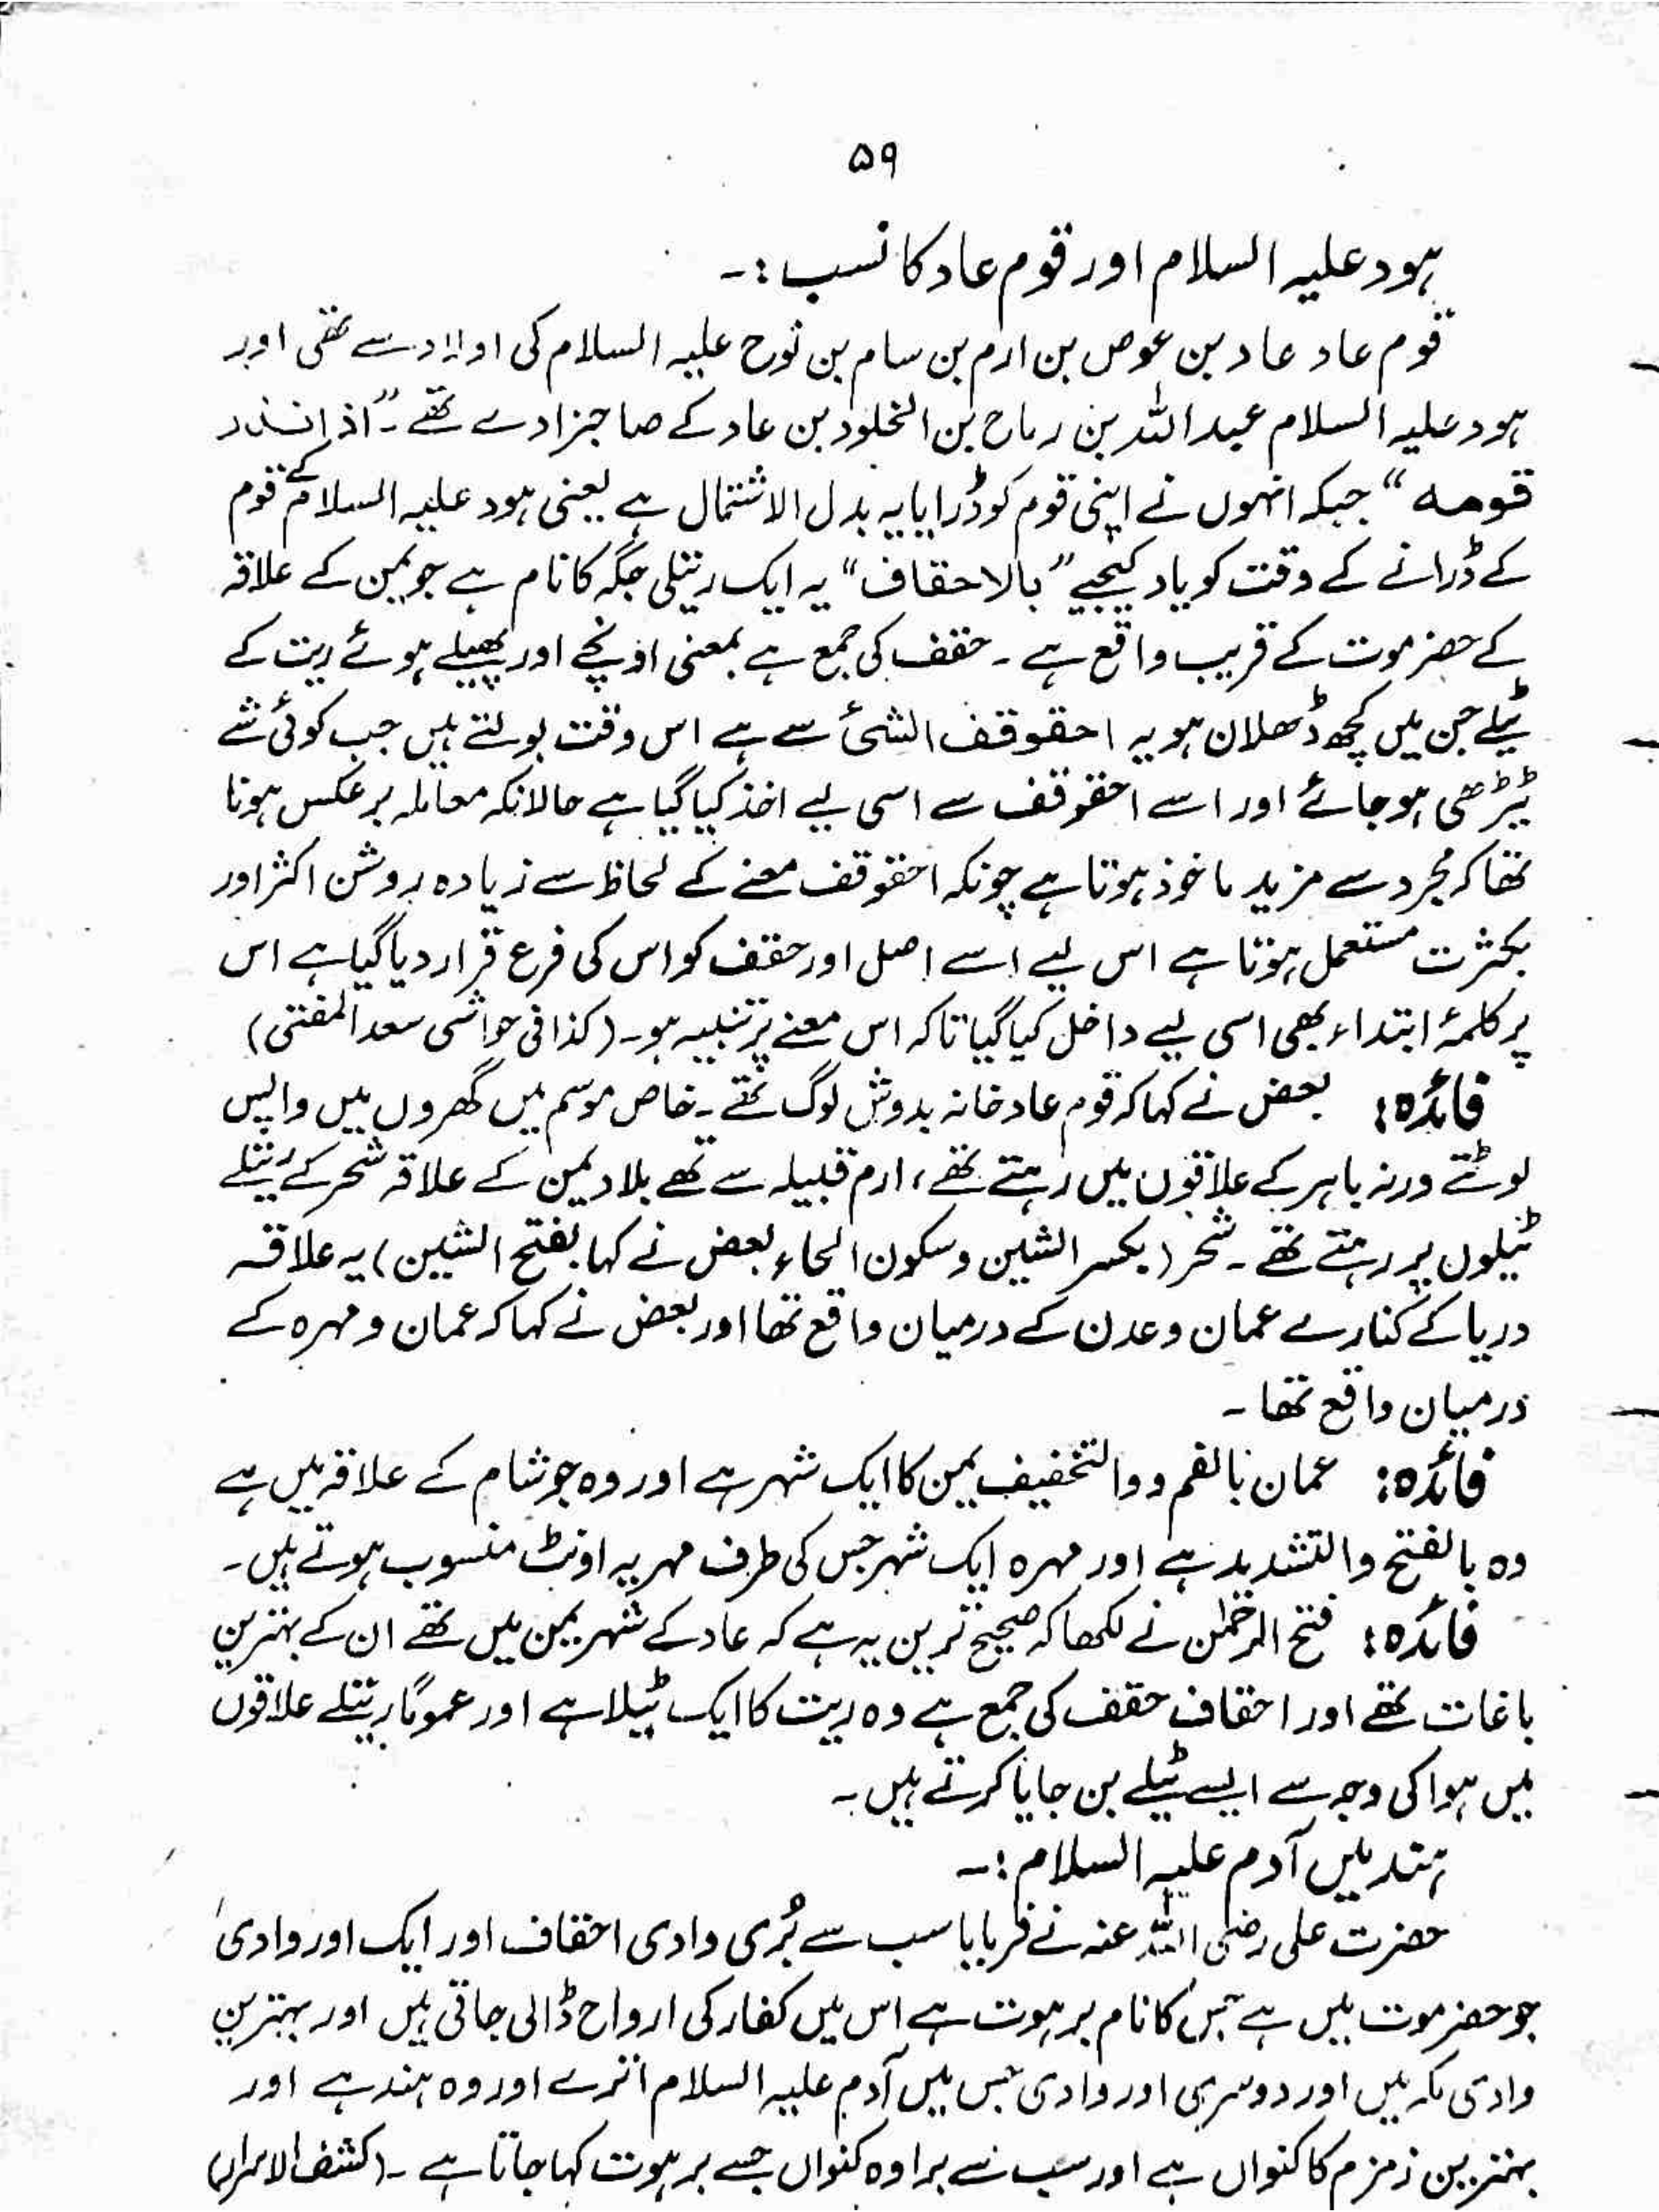 ۵۹
ہود علیہ السلام اور قوم عاد کا نسب :۔
قوم عاد عاد بن عوص بن ارم بن سام بن نوح علیہ السلام کی اولاد سے تھی اور
ہود علیہ السلام عبد اللہ بن رباح بن الخلود بن عاد کے صاحبزادے تھے ۔ "اذ انذر
قومه" جبکہ انہوں نے اپنی قوم کو ڈرایا یہ بدل الاشتمال ہے یعنی ہود علیہ السلام کے قوم
کے ڈرانے کے وقت کو یاد کیجیے "بالاحقاف" یہ ایک ریتلی جگہ کا نام ہے جو یمن کے علاقہ
کے حضرموت کے قریب واقع ہے ۔ حقف کی جمع ہے بمعنی اونچے اور پھیلے ہوئے ریت کے
ٹیلے جن میں کچھ ڈھلان ہو یہ احقوقف الشئ سے ہے اس وقت بولتے ہیں جب کوئی شے
ٹیڑھی ہو جائے اور اسے احقوقف سے اسی لیے اخذ کیا گیا ہے حالانکہ معاملہ برعکس ہونا
تھا کہ مجرد سے مزید ماخوذ ہوتا ہے چونکہ احقوقف معنے کے لحاظ سے زیادہ روشن اکثر اور
بکثرت مستعمل ہوتا ہے اس لیے اسے اصل اور حقف کو اس کی فرع قرار دیا گیا ہے اس
پر کلمۂ ابتداء بھی اسی لیے داخل کیا گیا تاکہ اس معنے پر تنبیہ ہو۔ (کذا فی حواشی سعد المفتی)
فائدہ: بعض نے کہا کہ قوم عاد خانہ بدوش لوگ تھے ۔ خاص موسم میں گھروں میں واپس
لوٹتے ورنہ باہر کے علاقوں میں رہتے تھے ، ارم قبیلہ سے تھے بلاد یمن کے علاقہ شحر کے ریتلے
ٹیلوں پر رہتے تھے ۔ شحر (بکسر الشین وسکون الحاء بعض نے کہا بفتح الشین) یہ علاقہ
دریا کے کنارے عمان و عدن کے درمیان واقع تھا اور بعض نے کہا کہ عمان و مہرہ کے
درمیان واقع تھا ۔
فائدہ: عمان بالضم و والتخفیف یمن کا ایک شہر ہے اور وہ جو شام کے علاقہ میں ہے
وہ بالفتح والتشدید ہے اور مہرہ ایک شہر جس کی طرف مہریہ اونٹ منسوب ہوتے ہیں ۔
فائدہ: فتح الرحمٰن نے لکھا کہ صحیح ترین یہ ہے کہ عاد کے شہر یمن میں تھے ان کے بہترین
باغات تھے اور احقاف حقف کی جمع ہے وہ ریت کا ایک ٹیلا ہے اور عموماً ریتلے علاقوں
میں ہوا کی وجہ سے ایسے ٹیلے بن جایا کرتے ہیں ۔
ہند میں آدم علیہ السلام :۔
حضرت علی رضی اللہ عنہ نے فرمایا سب سے بُری وادی احقاف اور ایک اور وادی
جو حضرموت میں ہے جس کا نام برہوت ہے اس میں کفار کی ارواح ڈالی جاتی ہیں اور بہترین
وادی مکہ میں اور دوسری اور وادی جس میں آدم علیہ السلام اترے اور وہ ہند ہے اور
بہترین زمزم کا کنواں ہے اور سب سے برا وہ کنواں جسے برہوت کہا جاتا ہے ۔ (کشف الاسرار)